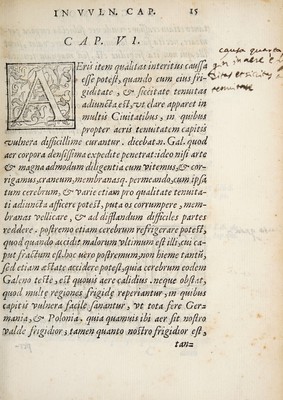 IN VVLN. CAP. 15
CAP. VI.
AEris item qualitas interitus caussa
esse potest, quando cum eius fri-
giditate, & siccitate tenuitas
adiuncta est, vt clare apparet in
multis Ciuitatibus, in quibus
propter aeris tenuitatem capitis
vulnera difficillime curantur. dicebat.n. Gal. quod
aer corpora densissima expedite penetrat: ideo nisi arte
& magna admodum diligentia cum vtemur, & cor-
rigamus, craneum, membranasq. permeando, cum ipsa
tum cerebrum, & varie etiam pro qualitate tenuita-
ti adiuncta afficere potest, puta os corrumpere, mem-
branas vellicare, & ad difflandum difficiles partes
reddere. postremo etiam cerebrum refrigerare potest,
quod quando accidit malorum vltimum est illi, cui ca-
put fractum est. hoc vero postremum, non hieme tantũ,
sed etiam æstate accidere potest, quia cerebrum eodem
Galeno teste, est quouis aere calidius. neque obstat,
quod multę regiones frigidę reperiantur, in quibus
capitis vulnera facile sanantur, vt tota fere Ger-
mania, & Polonia, quia quamuis ibi aer sit nostro
valde frigidior, tamen quanto nostro frigidior est,
tan-
causa